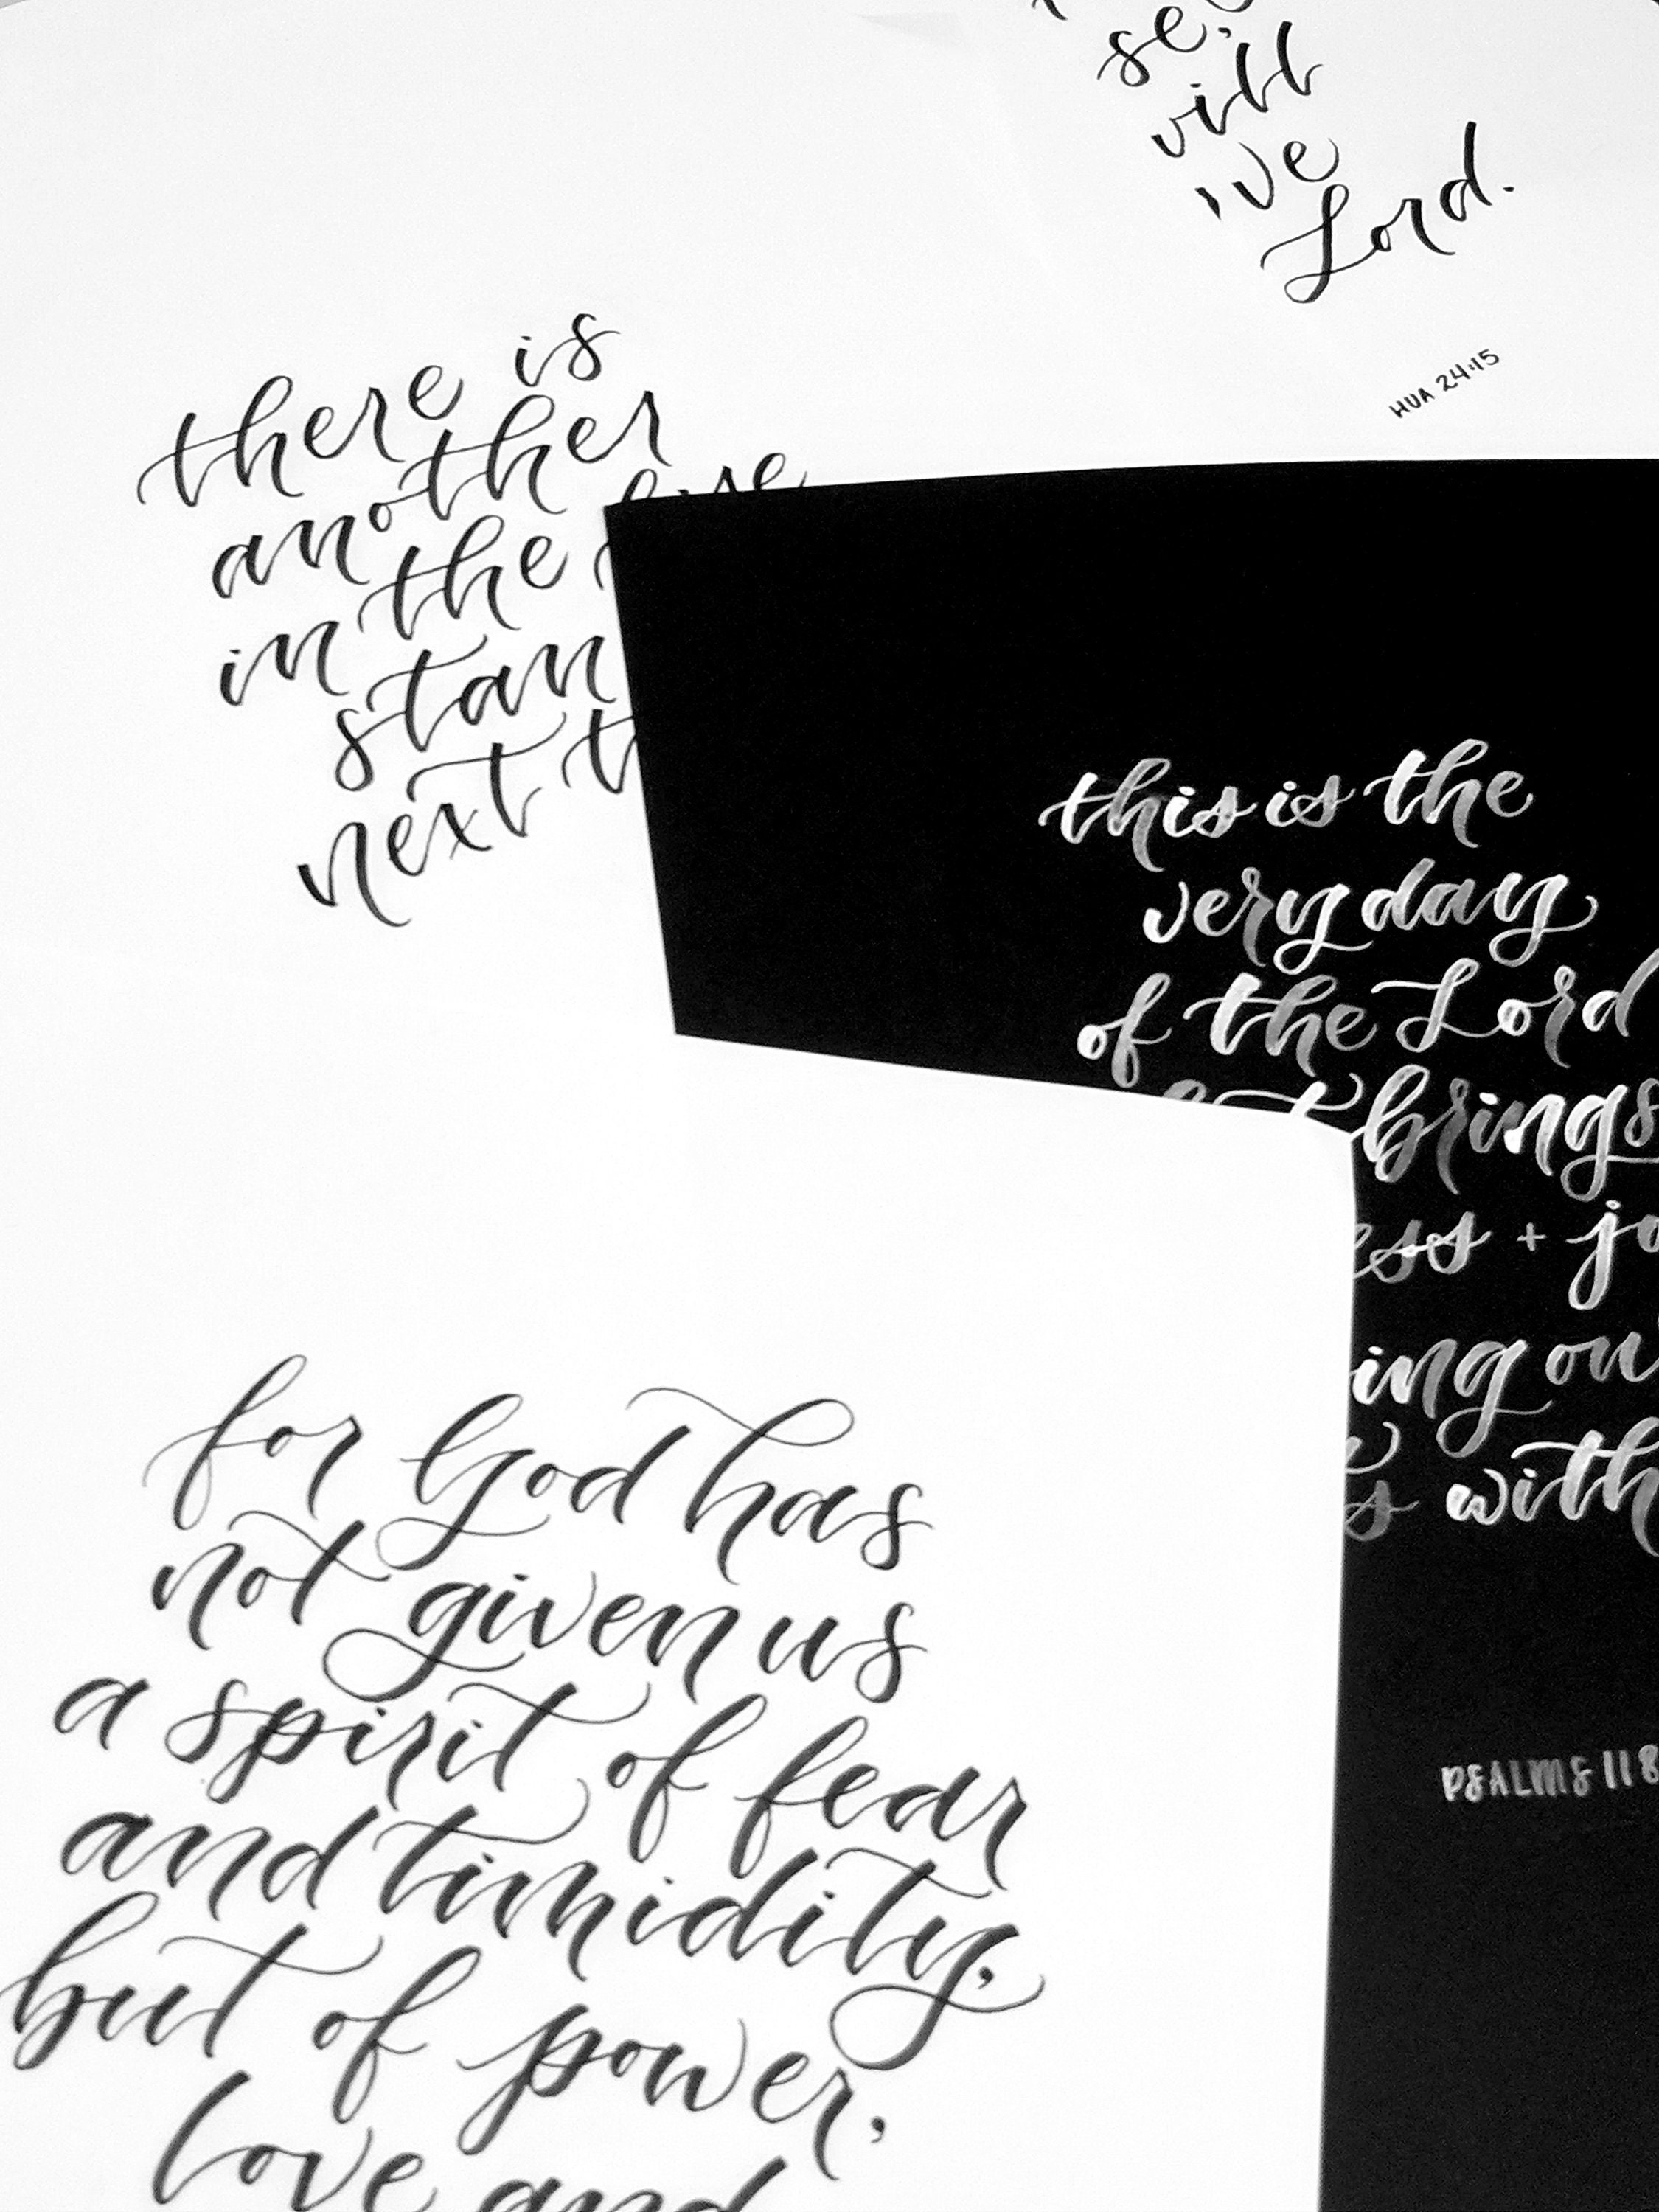 se,
will
Lord.
HUA 24:15
there is
another
in the
stan
next t
this is the
very day
of the Lord
brings
ess + jo
ing ou
s with
PSALMS 118
for God has
not given us
a spirit of fear
and timidity,
but of power,
love and